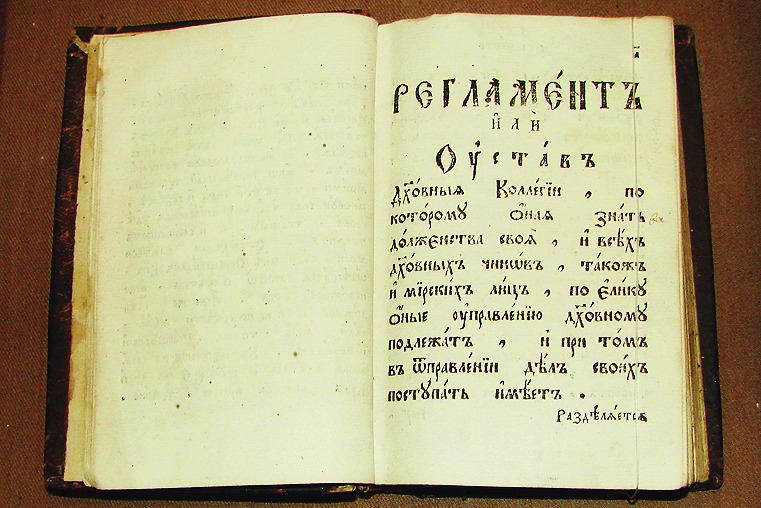 а҃
РЕГЛАМЕ́НТЪ
И҆ЛЍ
Оу҆ста́въ
Дх҃о́вныѧ Колле́гїи , по
кото́рому ѻ҆́наѧ зна́ть
до́лженства своѧ̀ , и҆ всѣ́хъ
дх҃о́вныхъ чинѡ́въ , та́кожъ
и҆ мі́рскихъ лицъ , по є҆ли́ку
ѻ҆́ные оу҆правле́нїю дх҃о́вному
подлежа́тъ , и҆ при то́мъ
въ ѿправле́нїи дѣ́лъ свои́хъ
поступа́ть и҆мѣ́етъ .
Раздѣлѧ́етсѧ